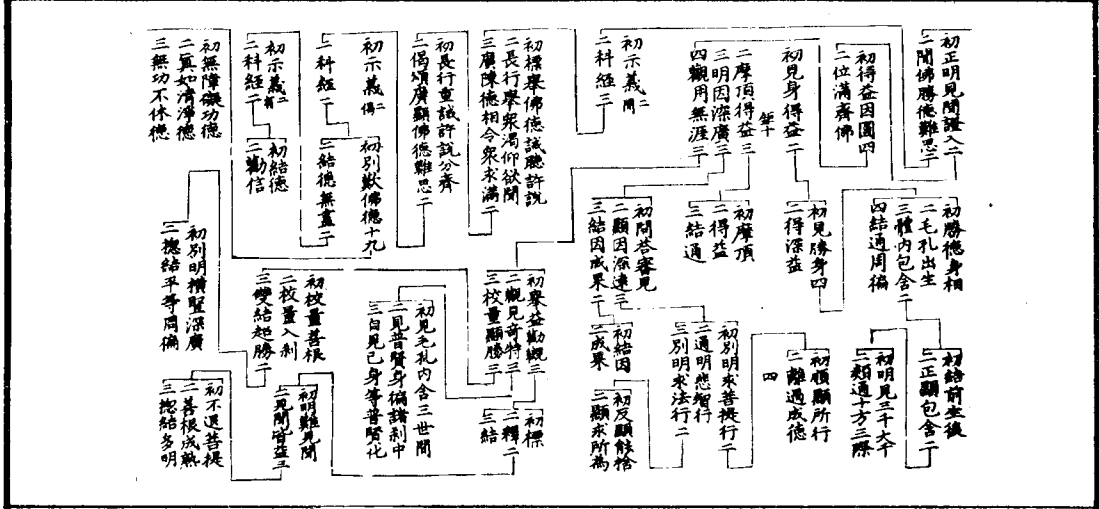 初正明見聞證入二
二聞佛勝德難思二
初得益因圓四
二位滿齊佛
初見身得益二
二摩頂得益三
三明因深廣三
四觀用無涯三
初示義二
二科經三
初標舉佛德誡聽許說
二長行舉眾渴仰欲聞
三廣陳德相令眾求滿二
初長行重誡許說分齊
二偈頌廣顯佛德難思二
初示義二
二科經二
初示義二
二科經二
初無障礙功德
二真如清淨德
三無功不休德
初勝德身相
二毛孔出生
三體內包含二
四結通周徧
初見勝身四
二得深益
初摩頂
二得益
三結通
初問答審見
二顯因深遠三
三結因成果二
初別歎佛德十九
二結德無盡二
初結德
二勸信
初結前生後
二正顯包含二
初明見三千大千
二類通十方三際
初順顯所行
二離過成德
四
初別明求菩提行二
二通明悲智行
三別明求法行二
初結因
二成果
初反顯能捨
二顯求所為
初舉益勸觀三
二觀見奇特三
三校量顯勝三
初標
二釋二
三結
初見毛孔內含三世間
二見普賢身徧諸剎中
三自見己身等普賢化
初校量善根
二校量入剎
三雙結超勝二
初明難見聞
二見聞皆益三
初別明橫豎深廣
二總結平等周徧
初不退菩提
二善根成熟
三總結多明